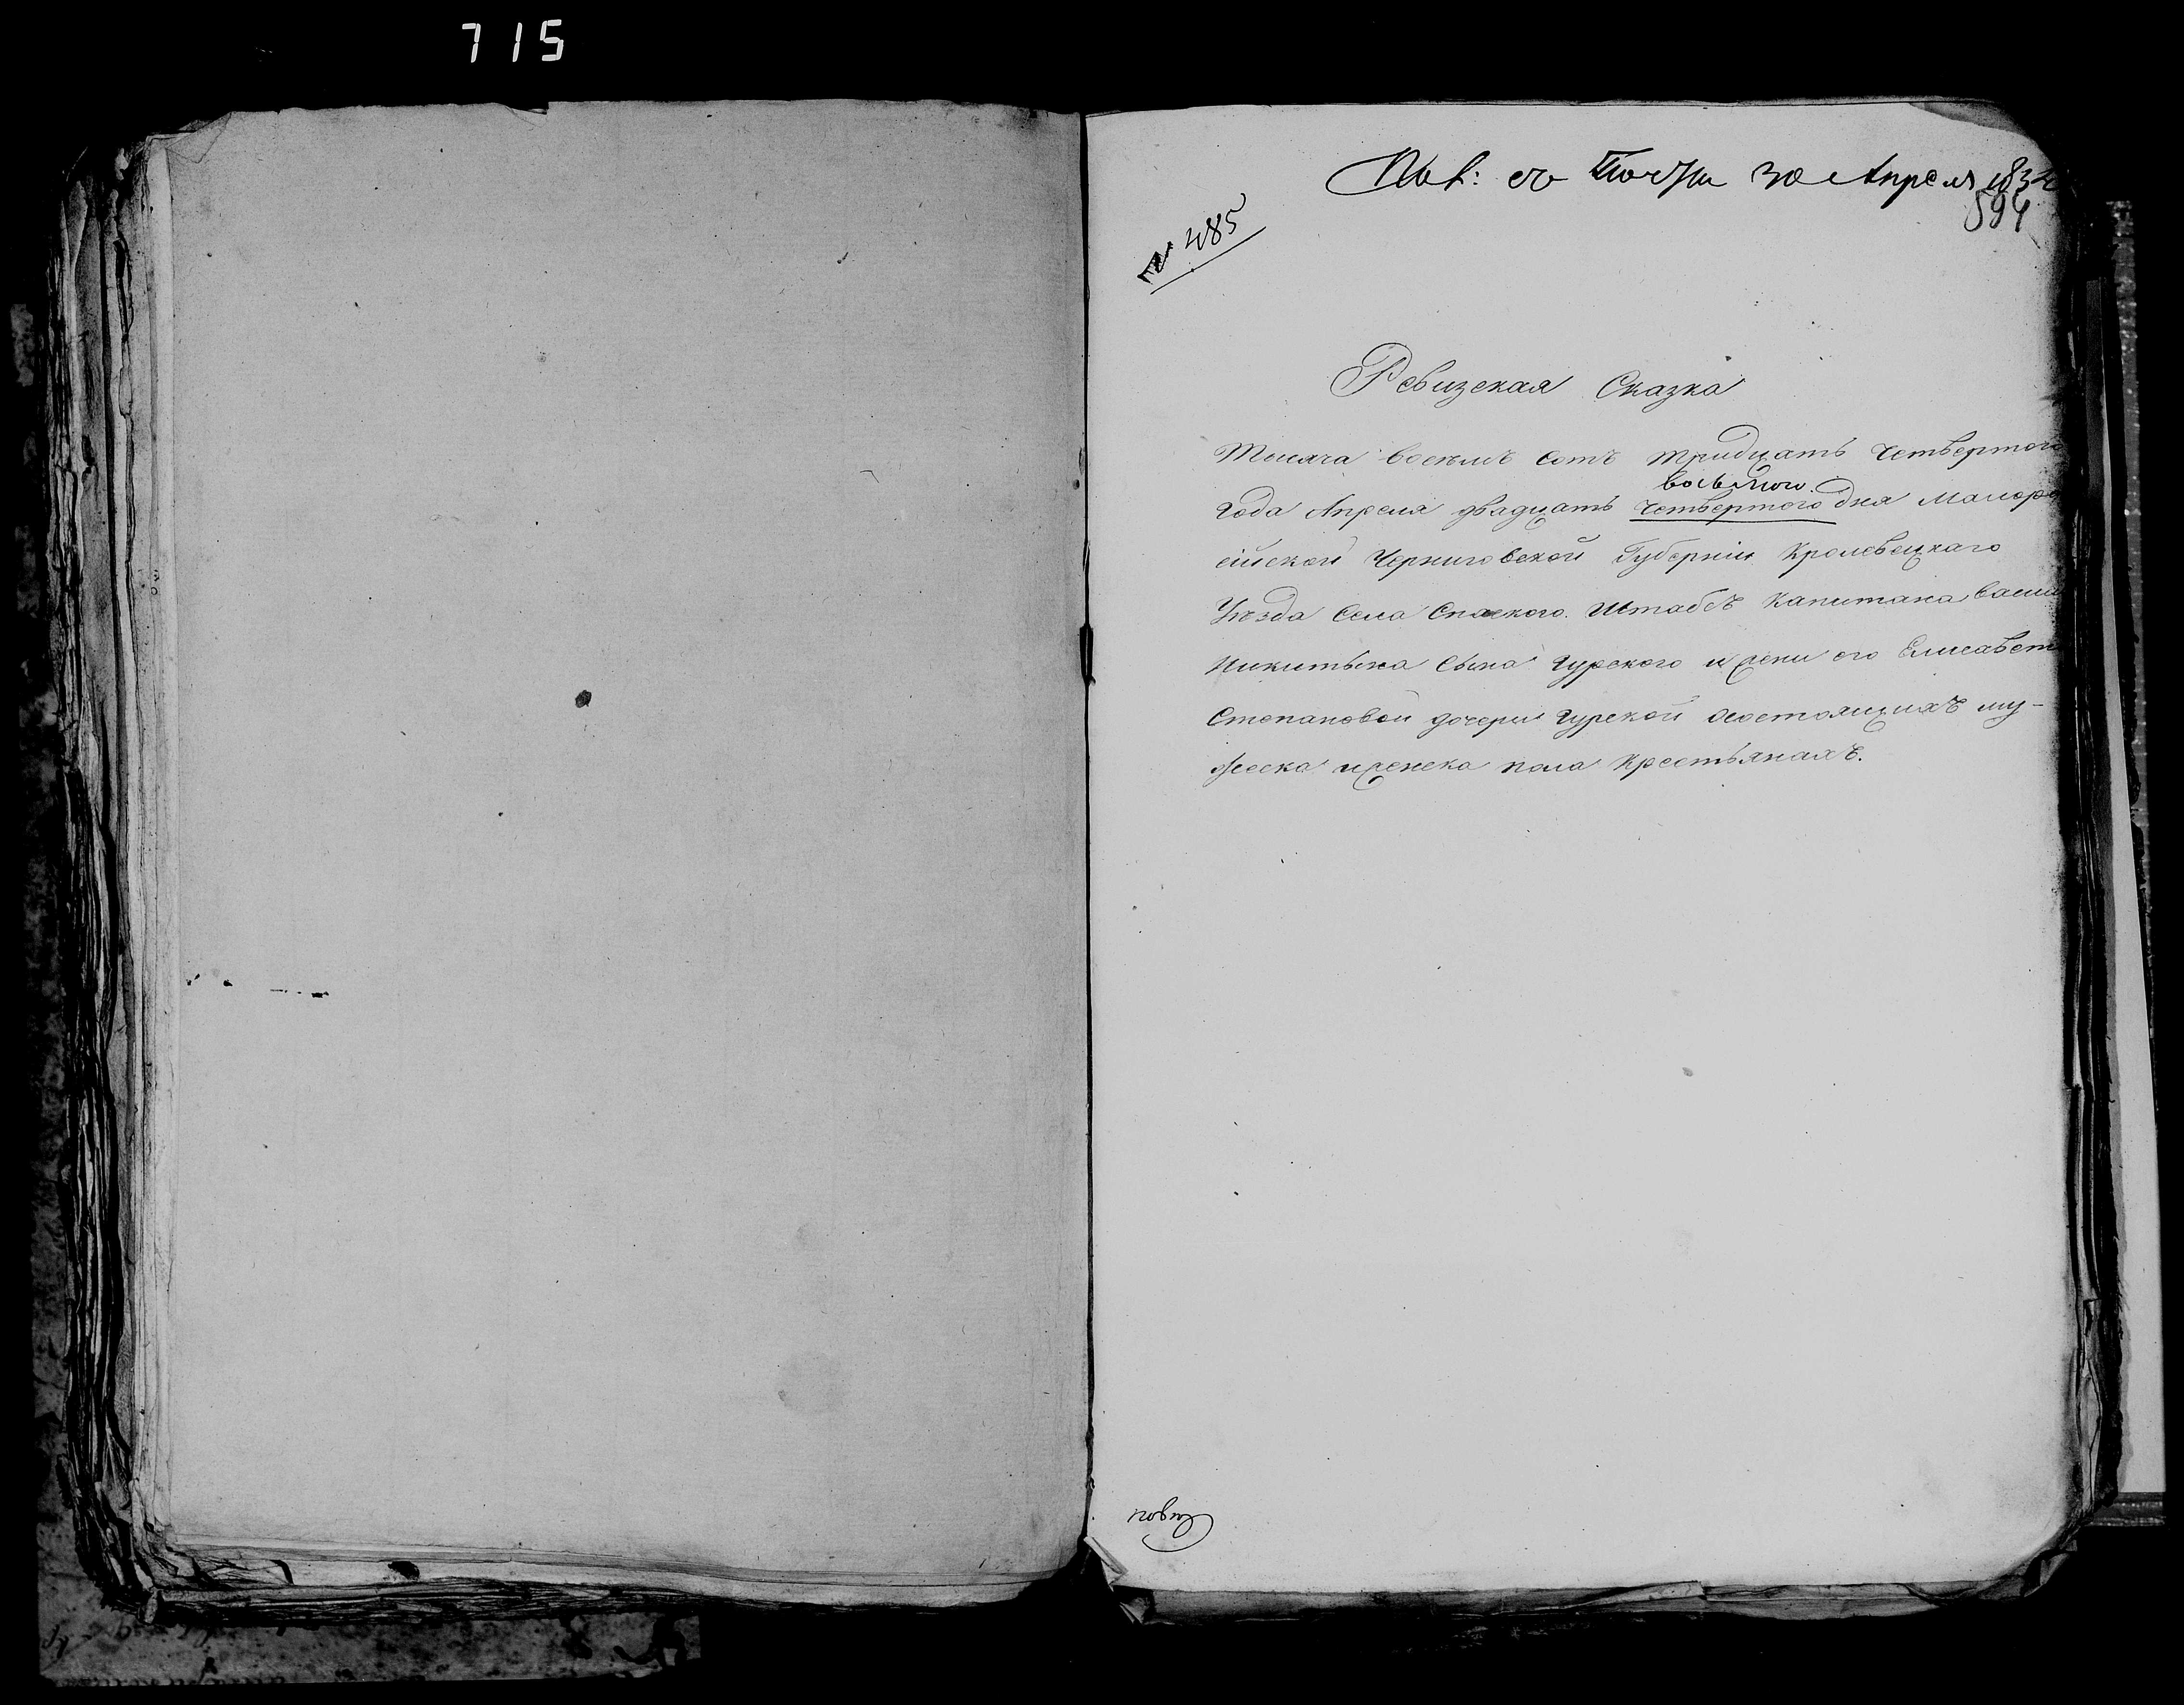 715
Пол: съ Почты 30 Апреля 1834
594
№ 485
Ревизская Сказка
Тысяча восемъ сотъ тридцать четвертого
восьмого
года Апреля двадцать четвертого дня Малоро
сійской Черниговской Губерніи Кролевецкаго
Уезда Села Спаского. Штабсъ Капитана Васил
Никитына Сына Гурского и жени его Елисавет
Степановой дочери Гурской состоящихъ му-
жеска и женска пола Крестьянахъ.